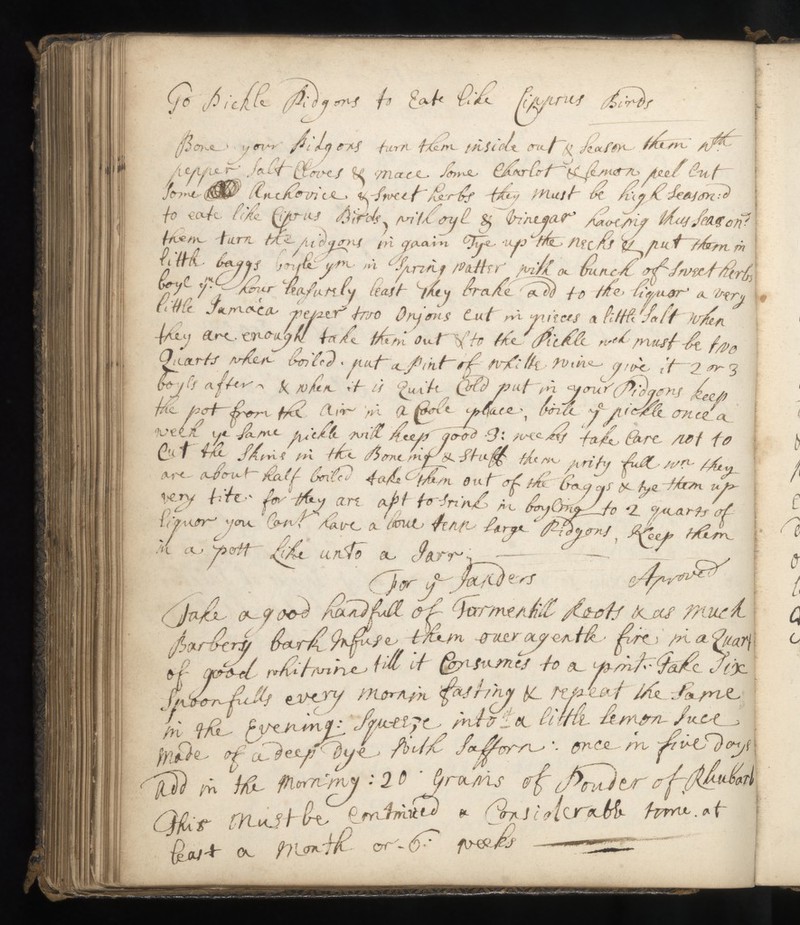 To Pickle Pidgons to Eate like Ciprus Birds
Bone your Pidgons turn them inside out & Season them wth
pepper Salt Cloves & mace Some Charlot & lemon peel Cut
Some Anchovice & Sweet herbs they must be high Season:d
to eate like Ciprus Birds, with oyl & Vinegar haveing thus Season:d
them turn the pidgons in gaain Tye up the necks & put them in
little baggs boyle ym in Spring watter with a bunch of Sweet herbs
boyl hour leasurely least they brake add to the liquor a very
little Jamaca peper two Onjons Cut in pieces a little Salt when
they are enough take them out & to the Pickle wch must be two
Quarts when boiled put a Pint of whitte wine give it 2 or 3
boyls after & when it is Quite Cold put in your Pidgons keep
the pot from the Air in a Coole place, boile ye pickle once a
week ye Same pickle will keep good 3: weekes take Care not to
Cut the Skins in the Boneing & Stuff them prity full wn they
are about half boiled take them out of the baggs & tye them up
very tite for they are apt to Srink in boyling to 2 quarts of
liquor you Cant have a bove tenn large Pidgons, Keep them
in a pott like unto a Jarr.
For ye Janders Aproved
Take a good handfull of Tormentill Roots & as much
Barbery bark Infuse them over a gentle fire in a Quart
of good whitwine till it Consumes to a pint. Take Six
Spoonfulls every mornin fasting & repeat the Same
in the Evening: Squeeze into it a little lemon Juce
made of a deep Dye with Safforn: once in five Days
add in the morning: 20 grains of Pouder of Rhubarb
This must be Continued a Considerable time. at
least a month or 6: weeks